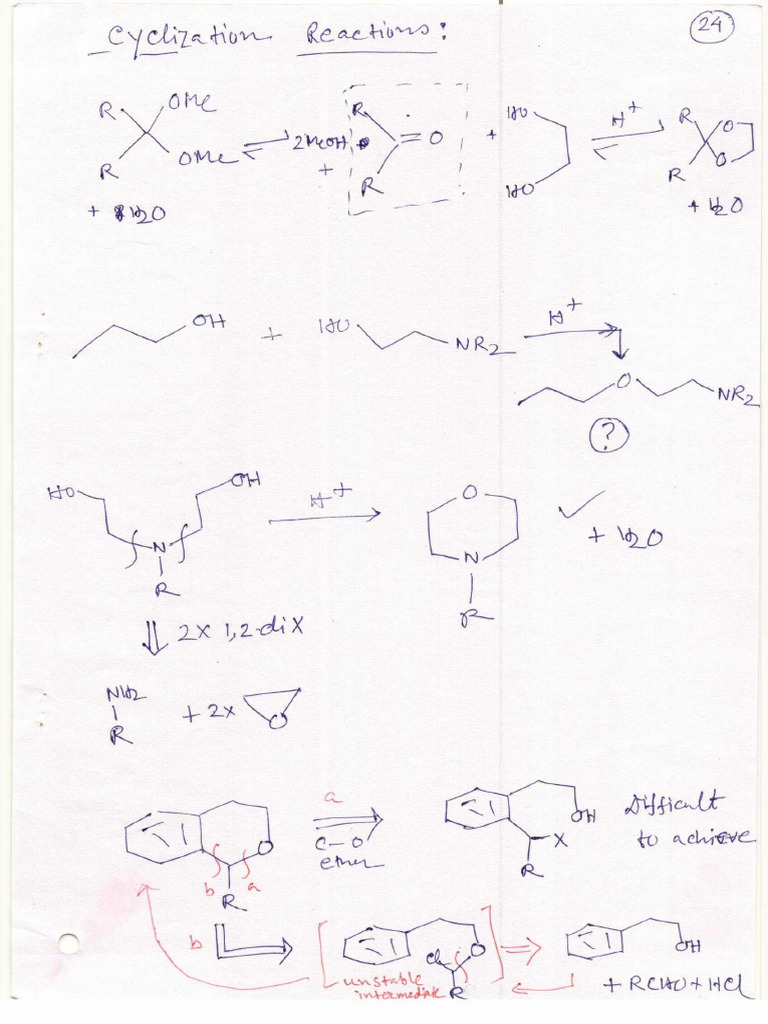 Cyclization Reactions:
24
R OMe
R OMe
+ H2O
2MeOH
+
R
R
=O
+
HO
HO
H+
R O
R O
+ H2O
OH + HO NR2 H+
O NR2
?
HO OH
N
R
H+
O
N
R
✓ + H2O
2x 1,2-diX
NH2
R
+ 2x
O
a
C-O
ether
O
b a
R
OH
X
R
Difficult
to achieve
b
O
Cl
R
unstable
intermediate
OH
+ RCHO + HCl